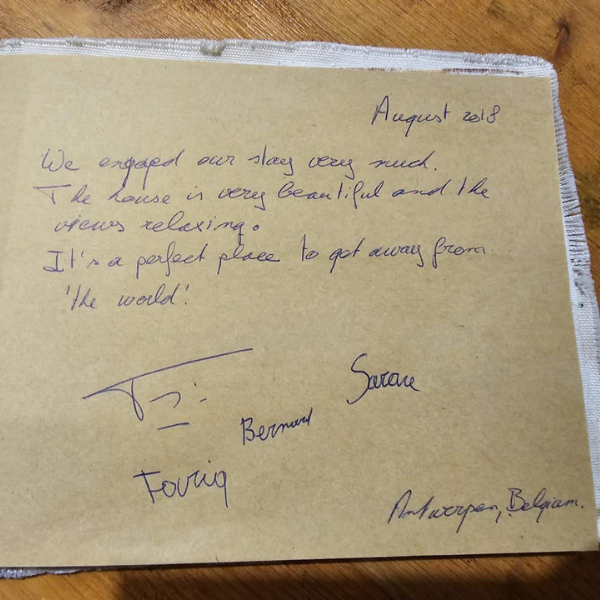 August 2018
We engaged our stay very much.
The house is very beautiful and the
views relaxing.
It's a perfect place to get away from
'the world'.
Bernard
Antwerpen, Belgium.